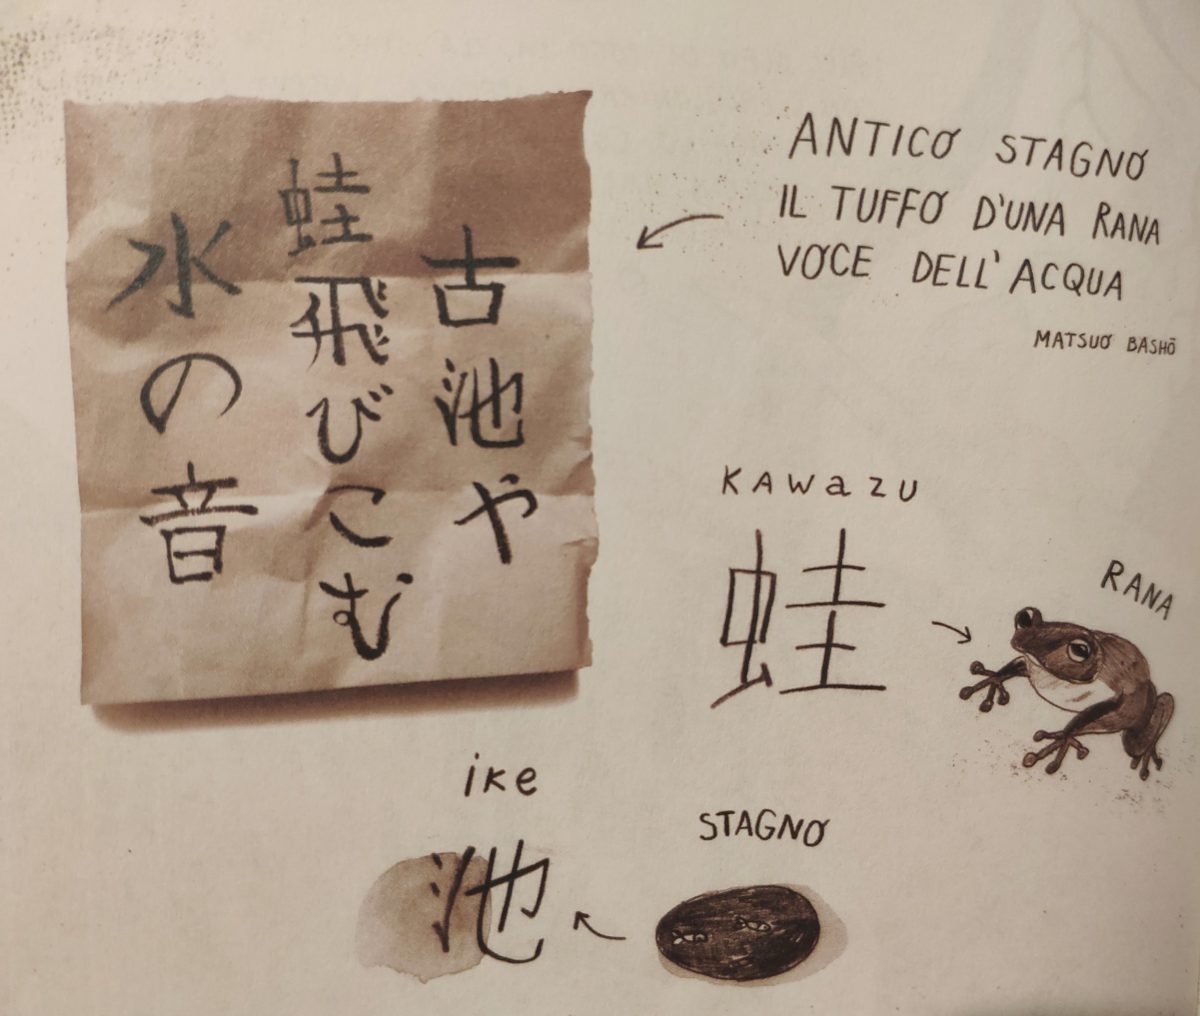 古池や
蛙飛びこむ
水の音
ANTICO STAGNO
IL TUFFO D'UNA RANA
VOCE DELL'ACQUA
MATSUO BASHŌ
KAWaZU
蛙
RANA
iKe
池
STAGNO